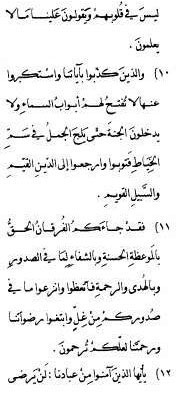 ليس في قلوبهم ويقولون علينا ما لا
يعلمون .
(١٠) والذين كذبوا بآياتنا واستكبروا
عنها لا تفتح لهم أبواب السماء ولا
يدخلون الجنة حتى يلج الجمل في سم
الخياط فتوبوا وارجعوا إلى الدين القيم
والسبيل القويم .
(١١) فقد جاءكم الفرقان الحق
بالموعظة الحسنة وبالشفاء لما في الصدور
وبالهدى والرحمة فاتعظوا وانزعوا ما في
صدوركم من غل وابتغوا رضواننا
ورحمتنا لعلكم ترحمون .
(١٢) يأيها الذين آمنوا من عبادنا : لن يرضى